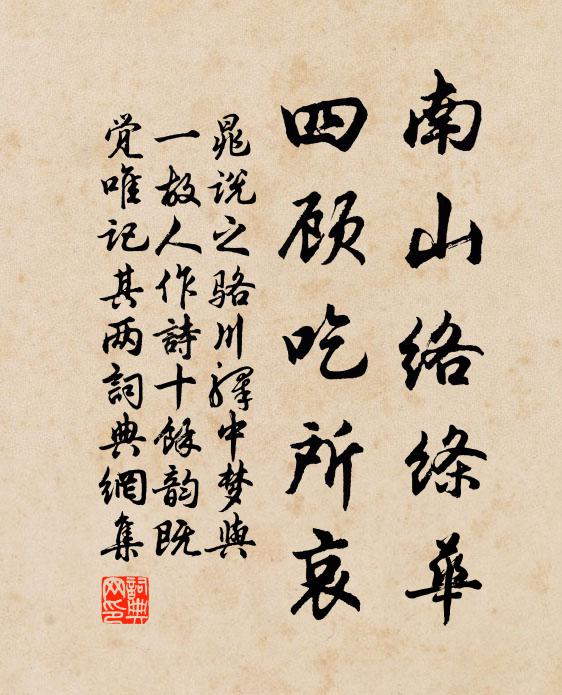 南山络绦華
四顾吃所哀
晁说之骆川驿中梦與
一故人作詩十餘韵既
觉唯记其两詞典網集
詞典網印